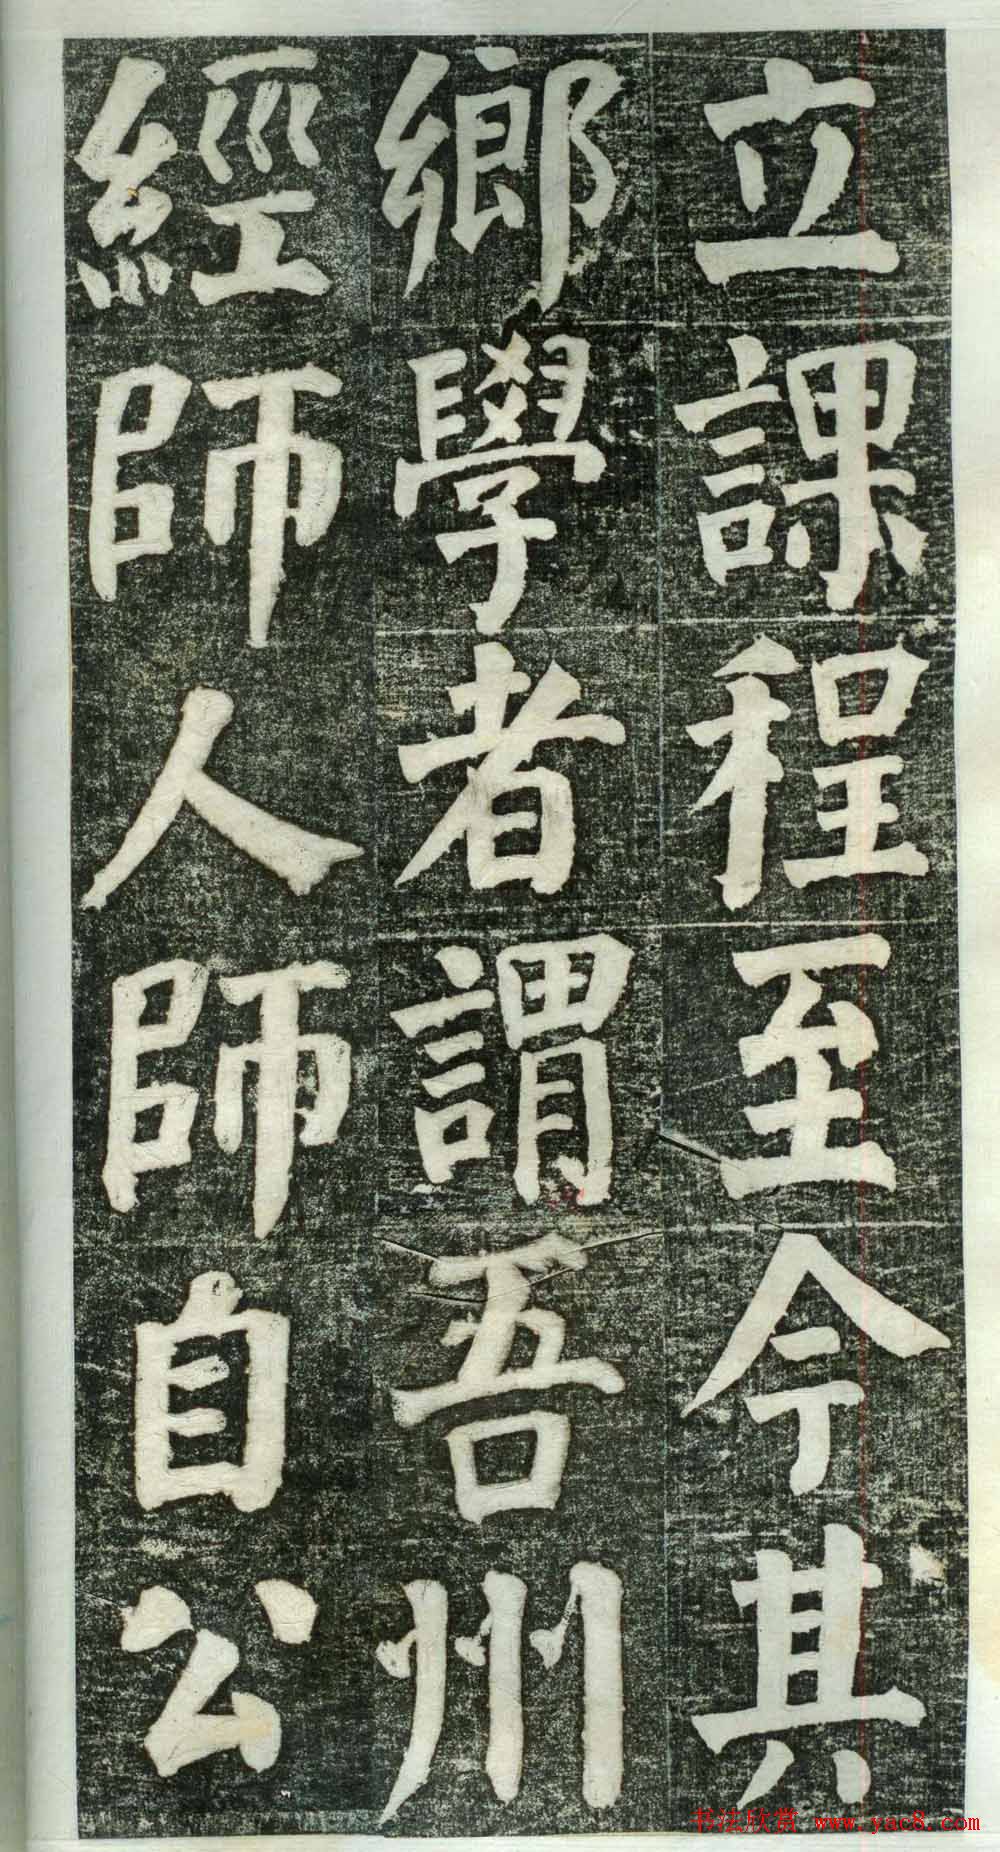 立課程至今其
鄉學者謂吾州
經師人師自公
书法欣赏 www.yac8.com